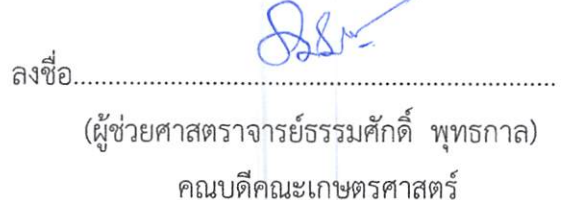 ลงชื่อ................................................................
(ผู้ช่วยศาสตราจารย์ธรรมศักดิ์ พุทธกาล)
คณบดีคณะเกษตรศาสตร์